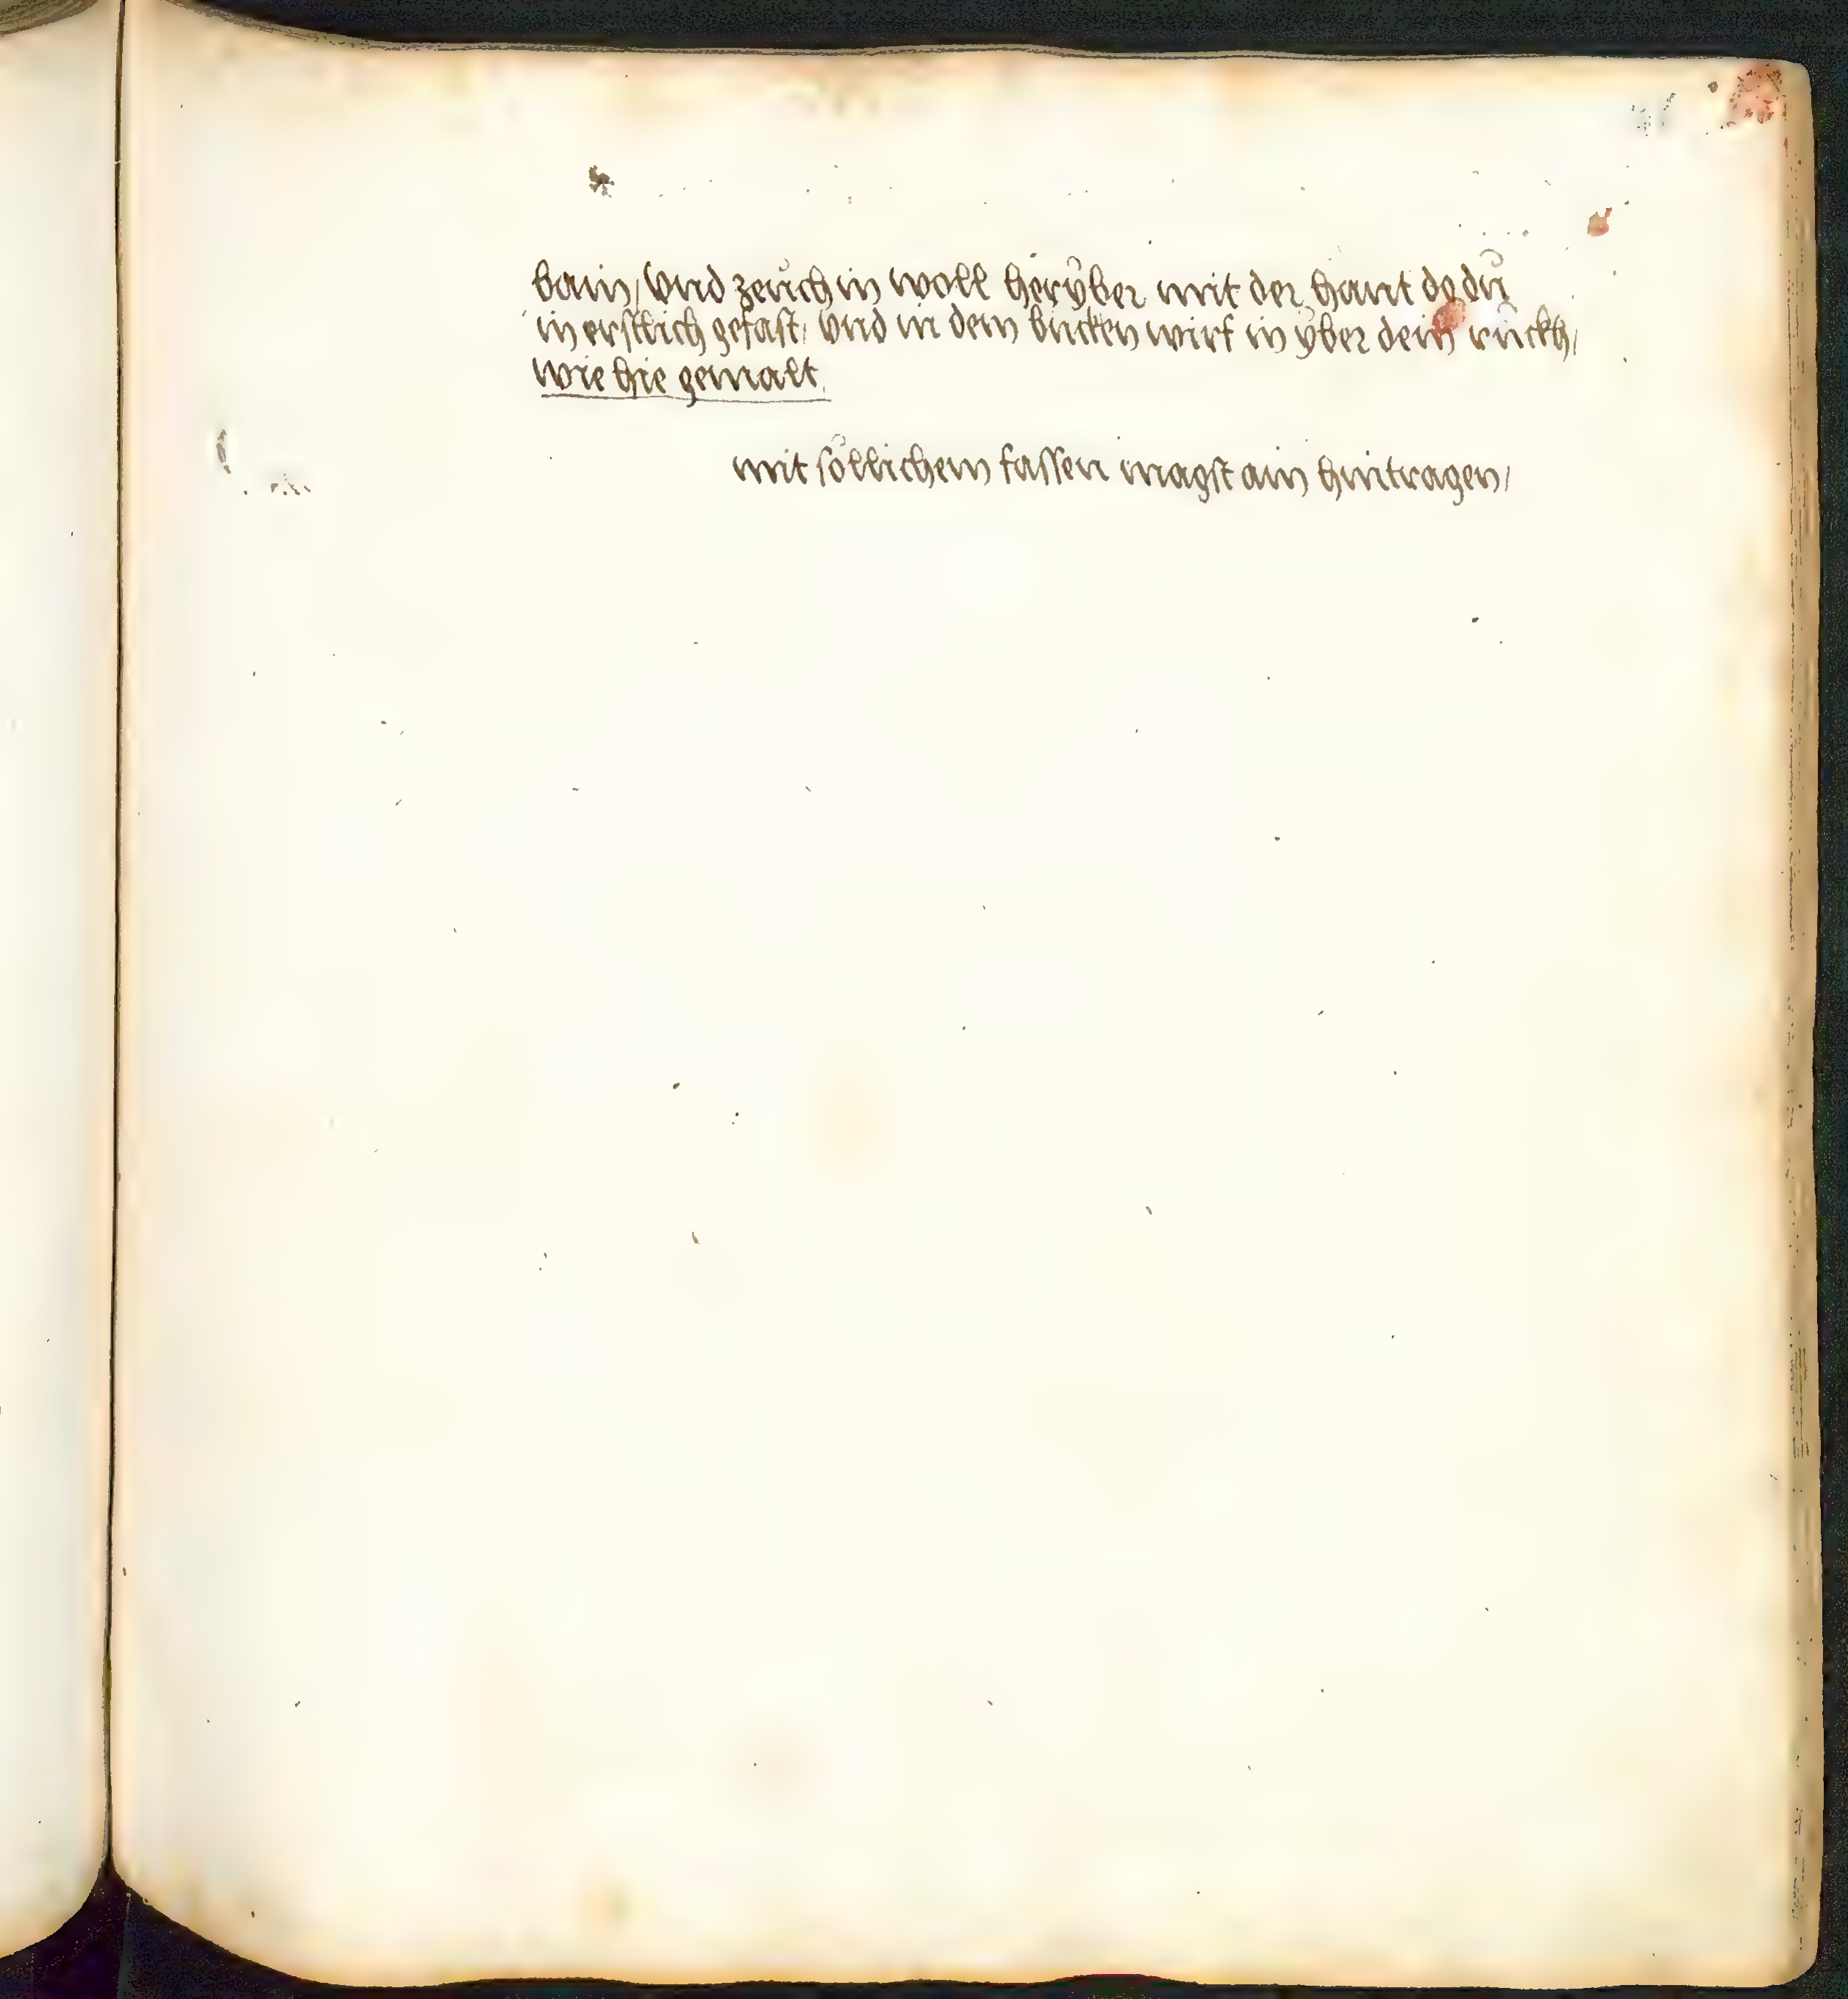 bain/ vnd zeuͤch in woll herÿber mit der hant do duͦ
in erstlich gefast/ vnd in dem bucken wirf in ÿber dein ruͦckh/
wie hie gemalt.
mit soͤllichem fassen magst ain hintragen/